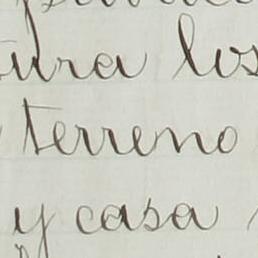 tura los
terreno
y casa